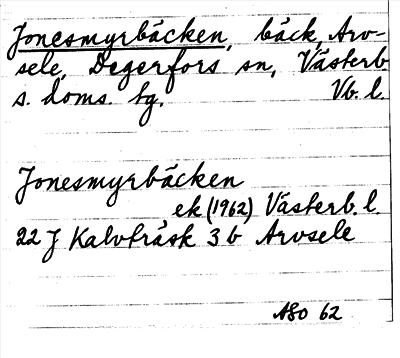 Jonesmyrbäcken, bäck, Arv-
sele, Degerfors sn, Västerb
s. doms. tg. Vb. l.
Jonesmyrbäcken
ek (1962) Västerb. l.
22 J Kalvträsk 3 b Arvsele
ASO 62